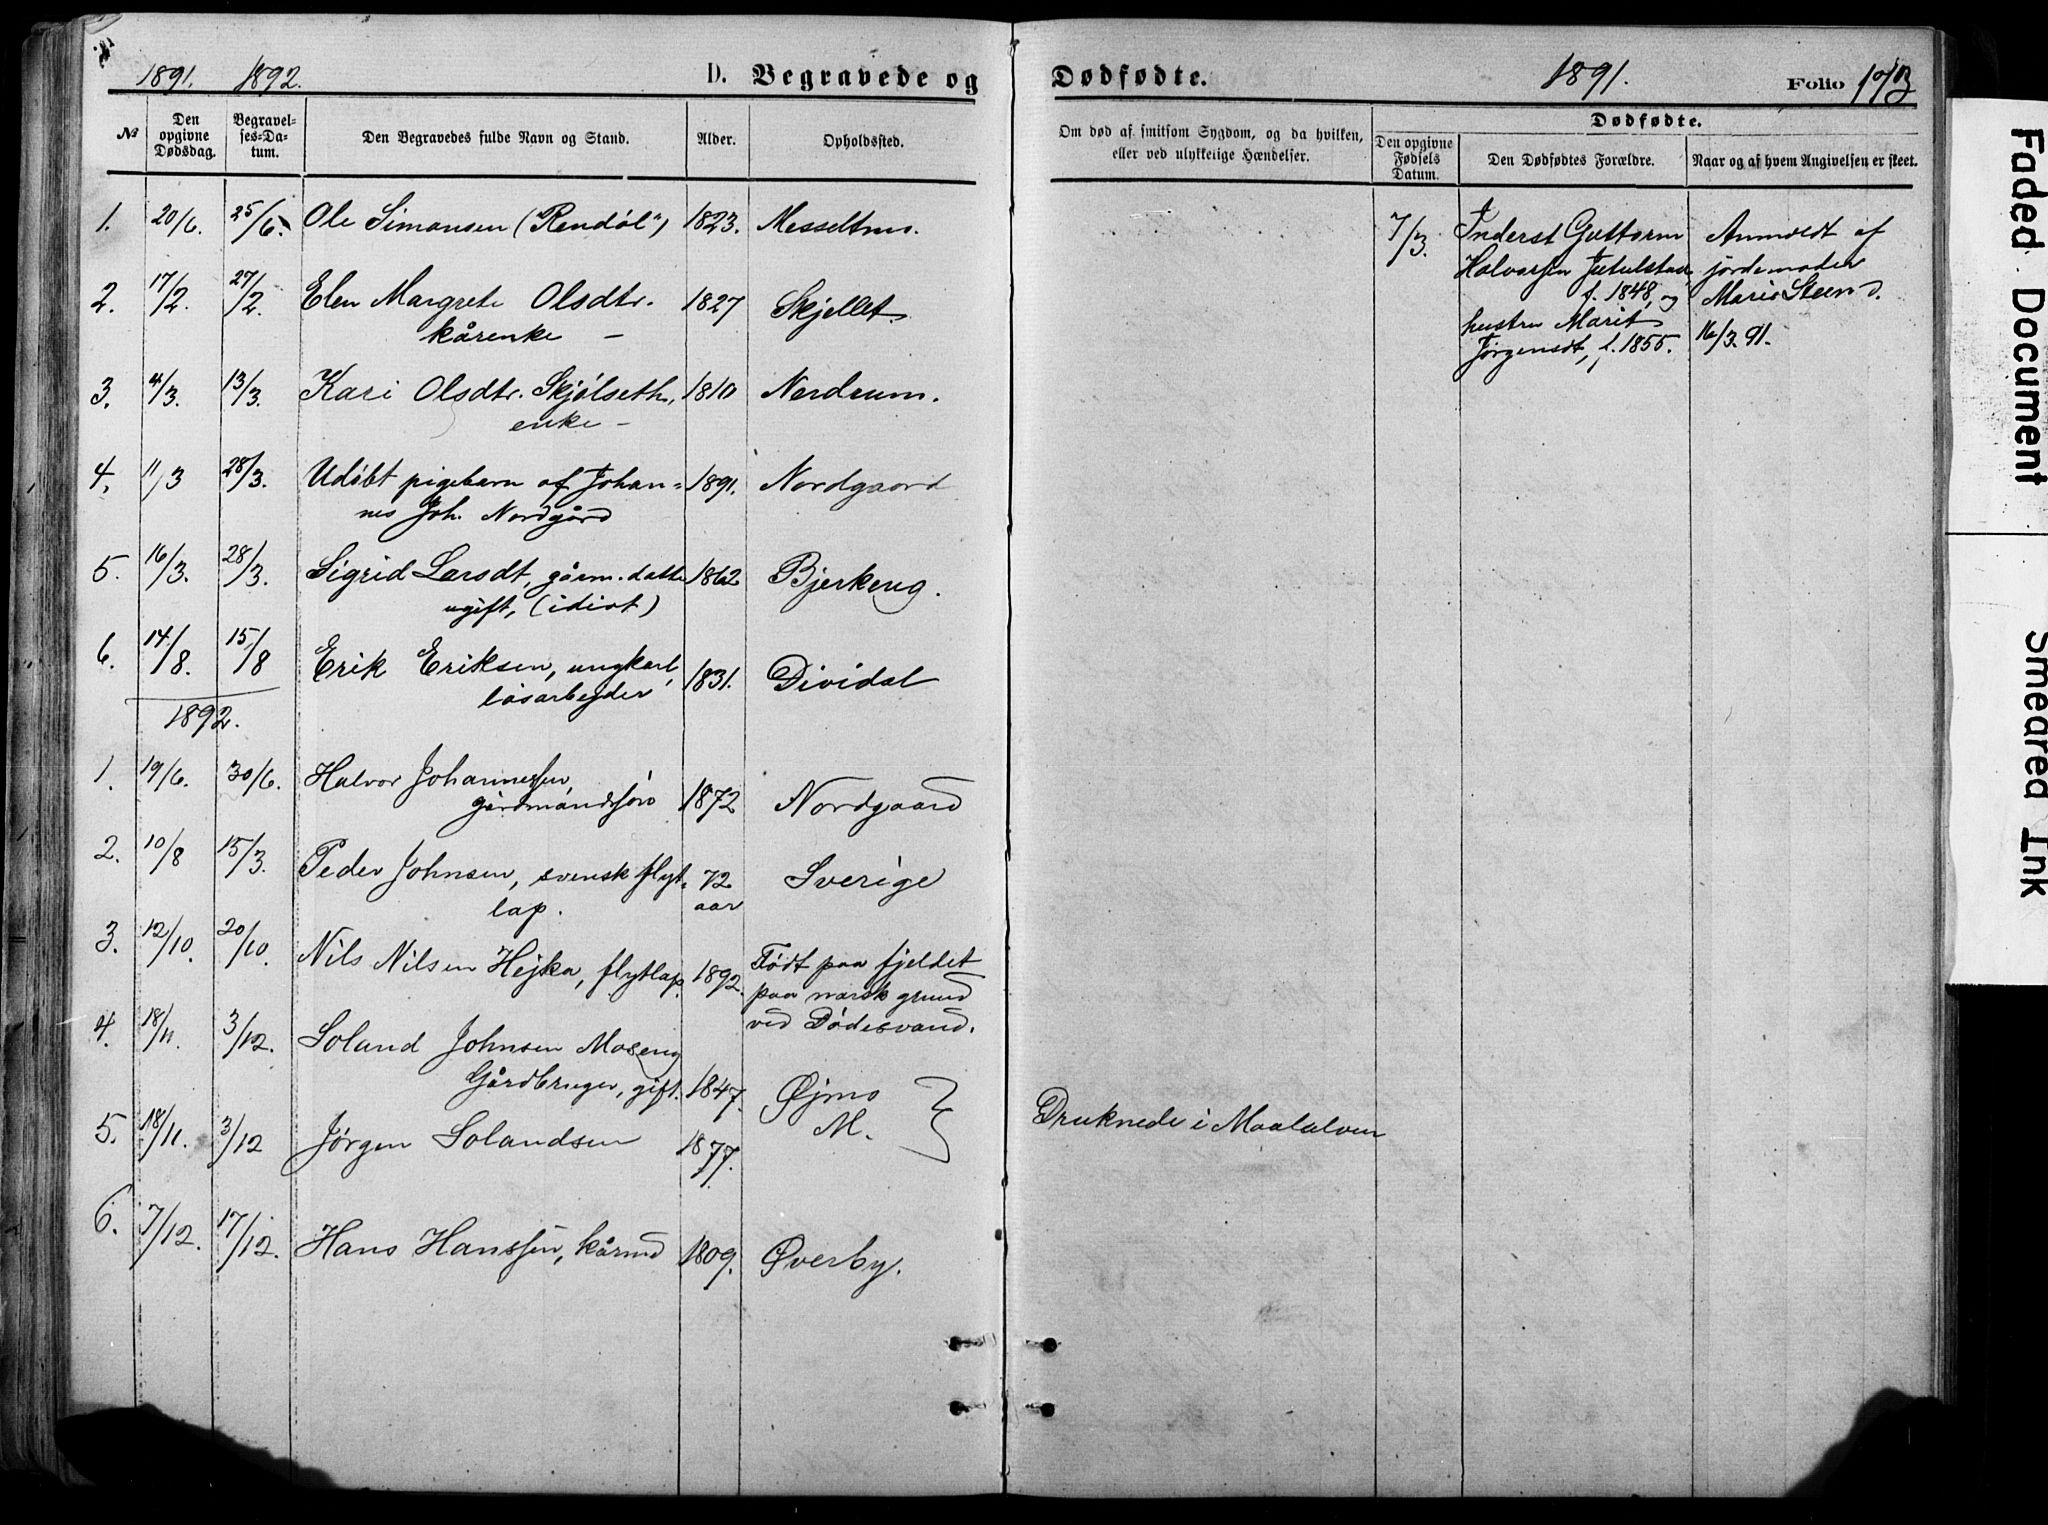 1891. 1892. D. Begravede og
№ Den opgivne Dødsdag. Begravel-ses-Da-tum. Den Begravedes fulde Navn og Stand. Alder. Opholdssted.
1. 20/6. 25/6. Ole Simonsen ("Rendøl") 1823. Messeltmo.
2. 17/2. 27/2. Elen Margrete Olsdtr. 1827 Skjellet.
kårenke –
3. 4/3. 13/3. Kari Olsdtr. Skjølseth, 1810 Nerdrum.
enke –
4. 11/3 28/3. Udøbt pigebarn af Johan= 1891. Nordgaard
nes Joh. Nordgård
5. 16/3. 28/3. Sigrid Larsdt, gårm. datte 1862 Bjerkeng.
ugift, (idiot)
6. 14/8. 15/8 Erik Eriksen, ungkarl, 1831. Dividal
løsarbejder
1892.
1. 19/6. 30/6. Halvor Johannessen,
gårdmandssøn 1872 Nordgaard
2. 10/8 15/3. Peder Johnsen, svensk flyt- 72 Sverige
lap. aar
3. 12/10. 20/10. Nils Nilsen Hejka, flytlap. 1892. Født paa fjeldet
paa norsk grund
ved Dødesvand.
4. 18/11. 3/12. Soland Johnsen Moseng
Gårdbruger, gift. 1847. Øjmo
M.
5. 18/11. 3/12 Jørgen Solandsen 1877.
6. 7/12. 17/12. Hans Hanssen, kårmd 1809. Øverby.
Dødfødte. 1891. Folio 173
Om død af smitsom Sygdom, og da hvilken,
eller ved ulykkelige Hændelser.
Dødfødte.
Den opgivne Fødsels Datum. Den Dødfødtes Forældre. Naar og af hvem Angivelsen er skeet.
7/3. Inderst Guttorm Anmeldt af
Halvorsen Jutulstad jordemoder
f. 1848, og Marie Steen d.
hustru Marit 16/3. 91.
Jørgensdt, f. 1855.
Druknede i Maalselven
Faded Document
Smeared Ink